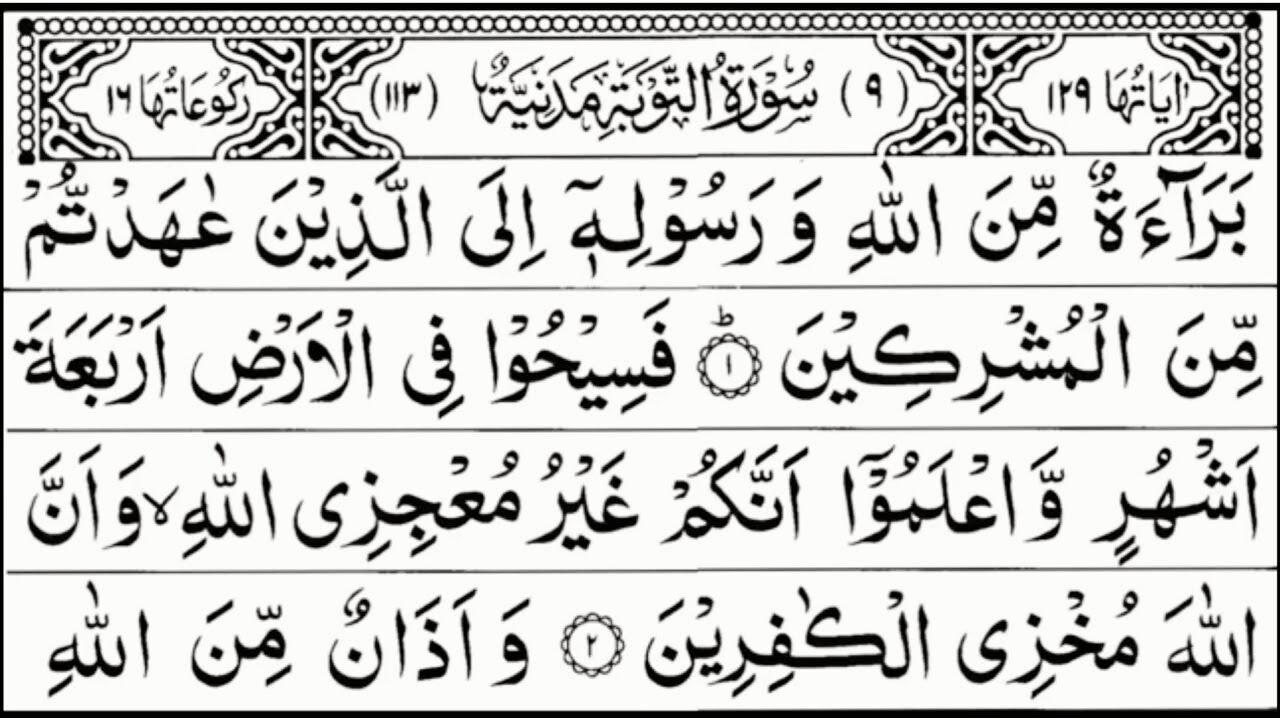 اٰيَاتُهَا ١٢٩ (٩) سُوْرَةُ التَّوْبَةِ مَدَنِيَّةٌ (١١٣) رُكُوْعَاتُهَا ١٦
بَرَآءَةٌ مِّنَ اللّٰهِ وَ رَسُوْلِهٖۤ اِلَى الَّذِيْنَ عٰهَدْتُّمْ
مِّنَ الْمُشْرِكِيْنَ ؕ ١ فَسِيْحُوْا فِى الْاَرْضِ اَرْبَعَةَ
اَشْهُرٍ وَّ اعْلَمُوْۤا اَنَّكُمْ غَيْرُ مُعْجِزِى اللّٰهِ ۙ وَ اَنَّ
اللّٰهَ مُخْزِى الْكٰفِرِيْنَ ٢ وَ اَذَانٌ مِّنَ اللّٰهِ